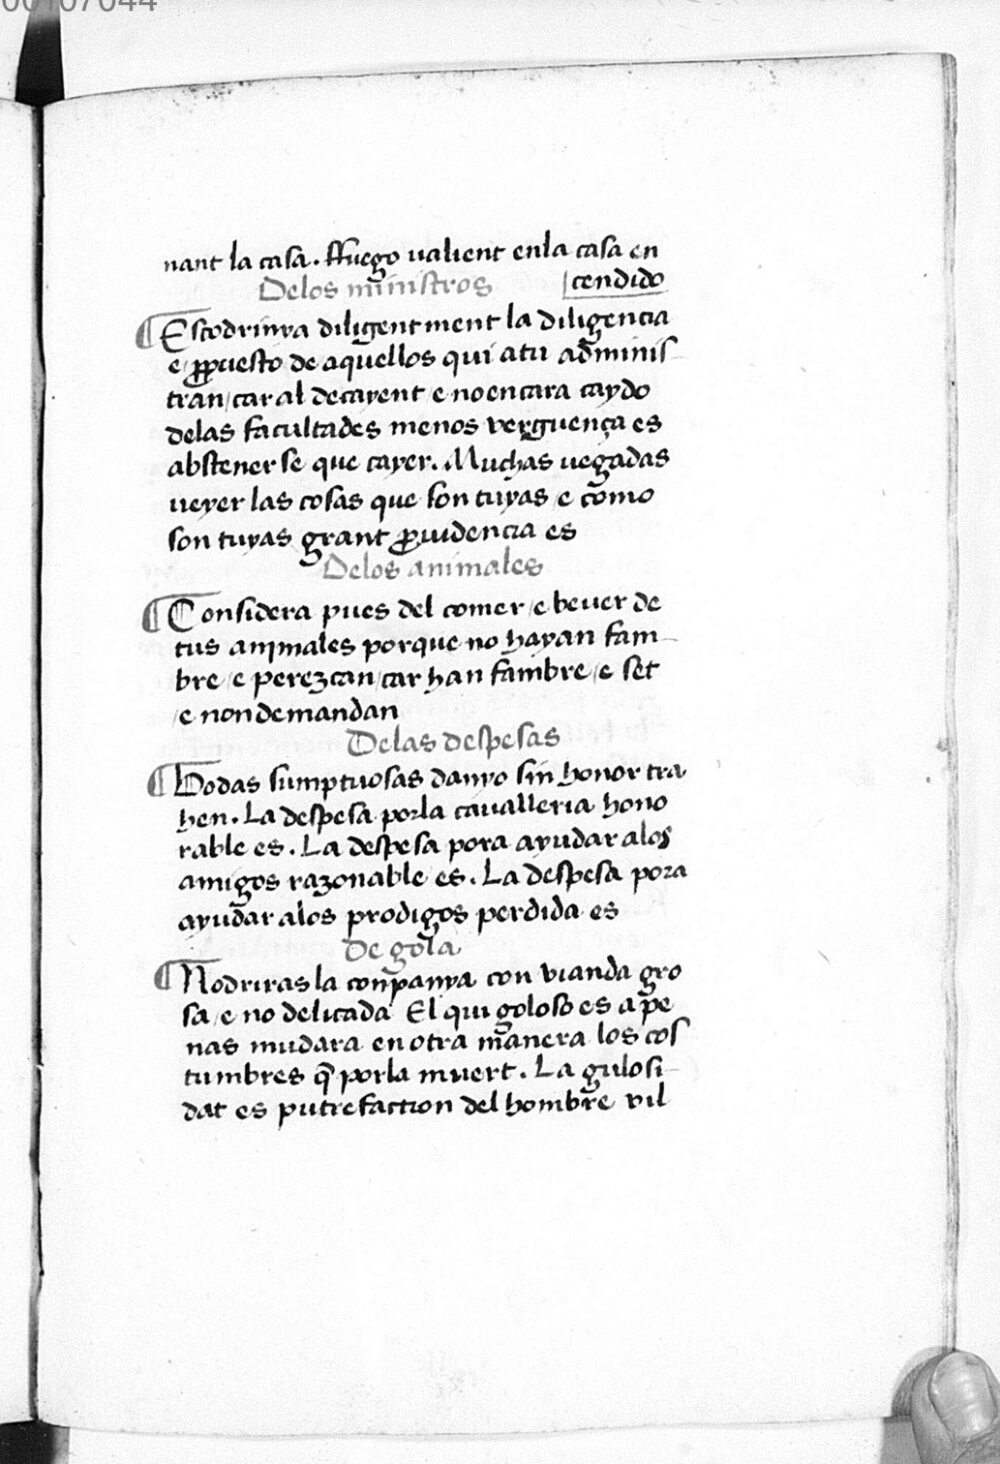 00107044
nant la casa. ffuego valient enla casa en
cendido
Delos ministros
¶ Escodrinya diligentment la diligencia
e, ꝓpuesto de aquellos qui atu adminis
tran, car al decayent, e noencara caydo
delas facultades menos verguença es
abstenerse que cayer. Muchas vegadas
veyer las cosas que son tuyas, e como
son tuyas grant ꝓuidencia es
Delos animales
¶ Considera pues del comer, e bever de
tus animales porque no hayan fam-
bre, e perezcan, car han fambre, e set
, e nondemandan
Delas despesas
¶ Bodas sumptuosas danyo sin honor tra
hen. La despesa porla cavalleria hono
rable es. La despesa pora ayudar alos
amigos razonable es. La despesa pora
ayudar alos prodigos perdida es
De gola
¶ Nodriras la conpanya con vianda gro
sa, e no delicada El qui goloso es ape
nas mudara en otra manera los cos
tumbres q̃ porla muert. La gulosi-
dat es putrefaction del hombre vil